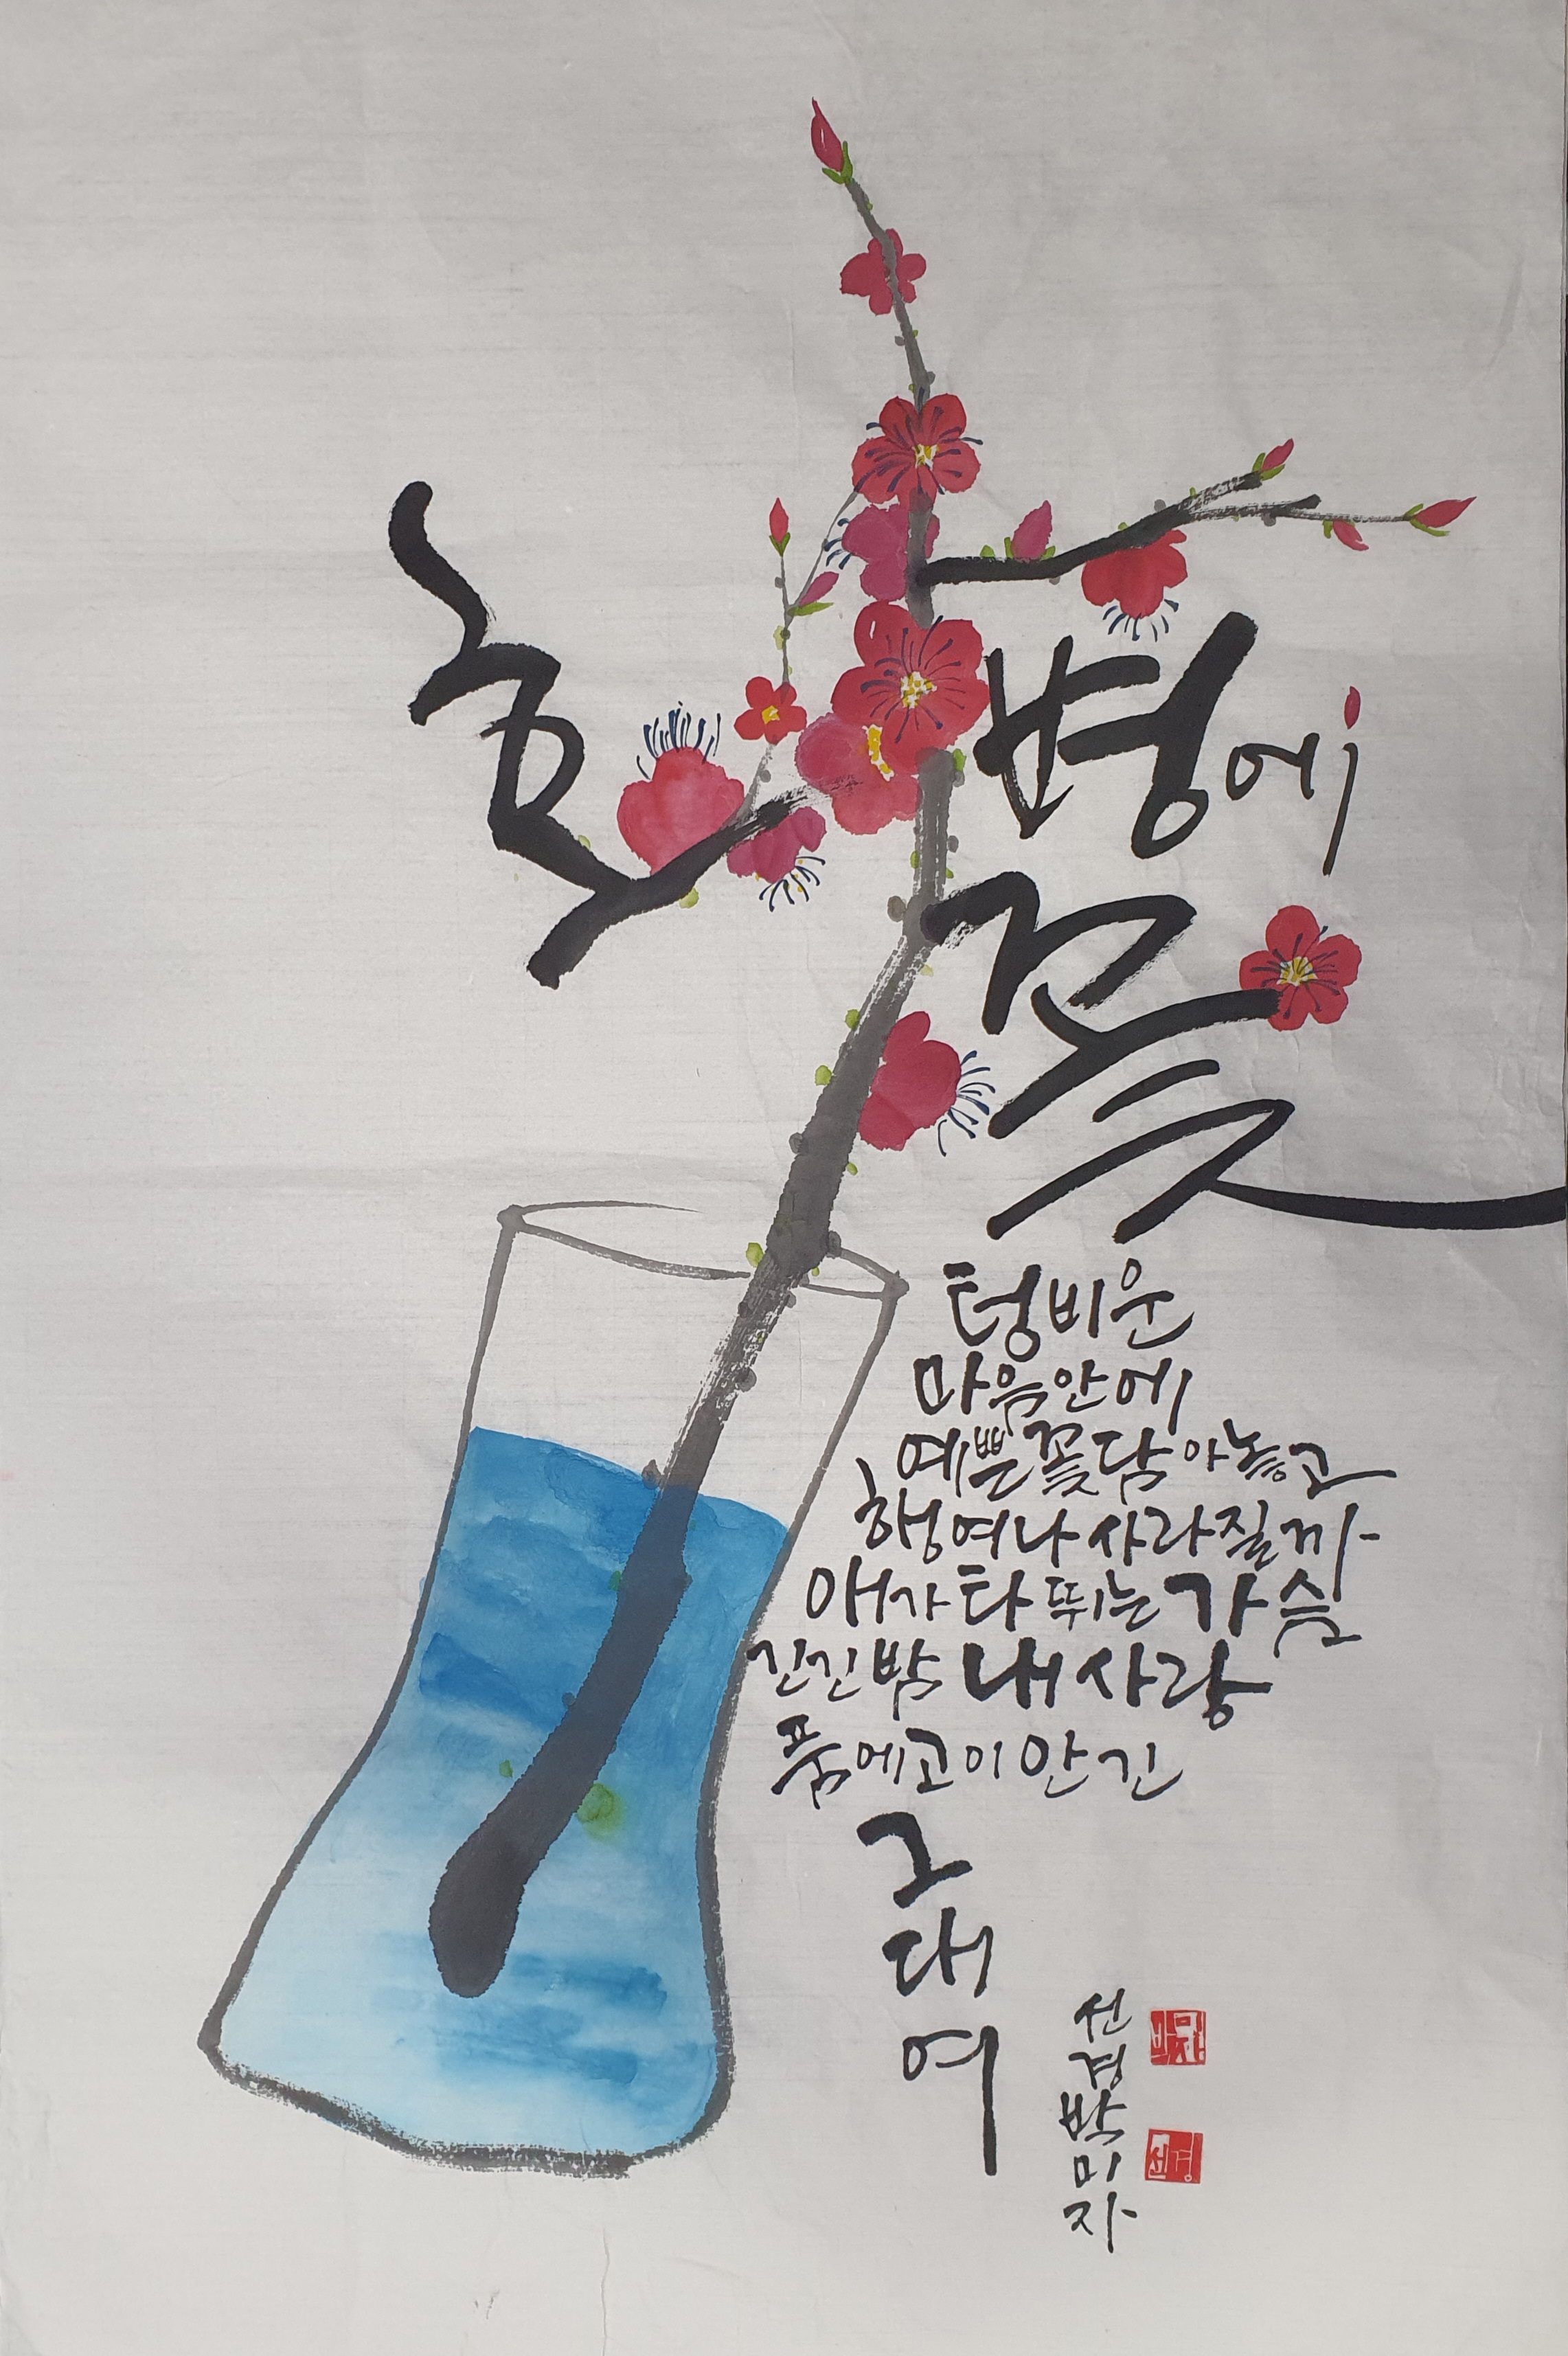 화병에
꽃
텅비운
마음안에
예쁜꽃담아놓고
행여나 사라질까
애가타 뛰는 가슴
긴긴밤 내사랑
품에고이안긴
그대여
선경박미자
박미자
선경